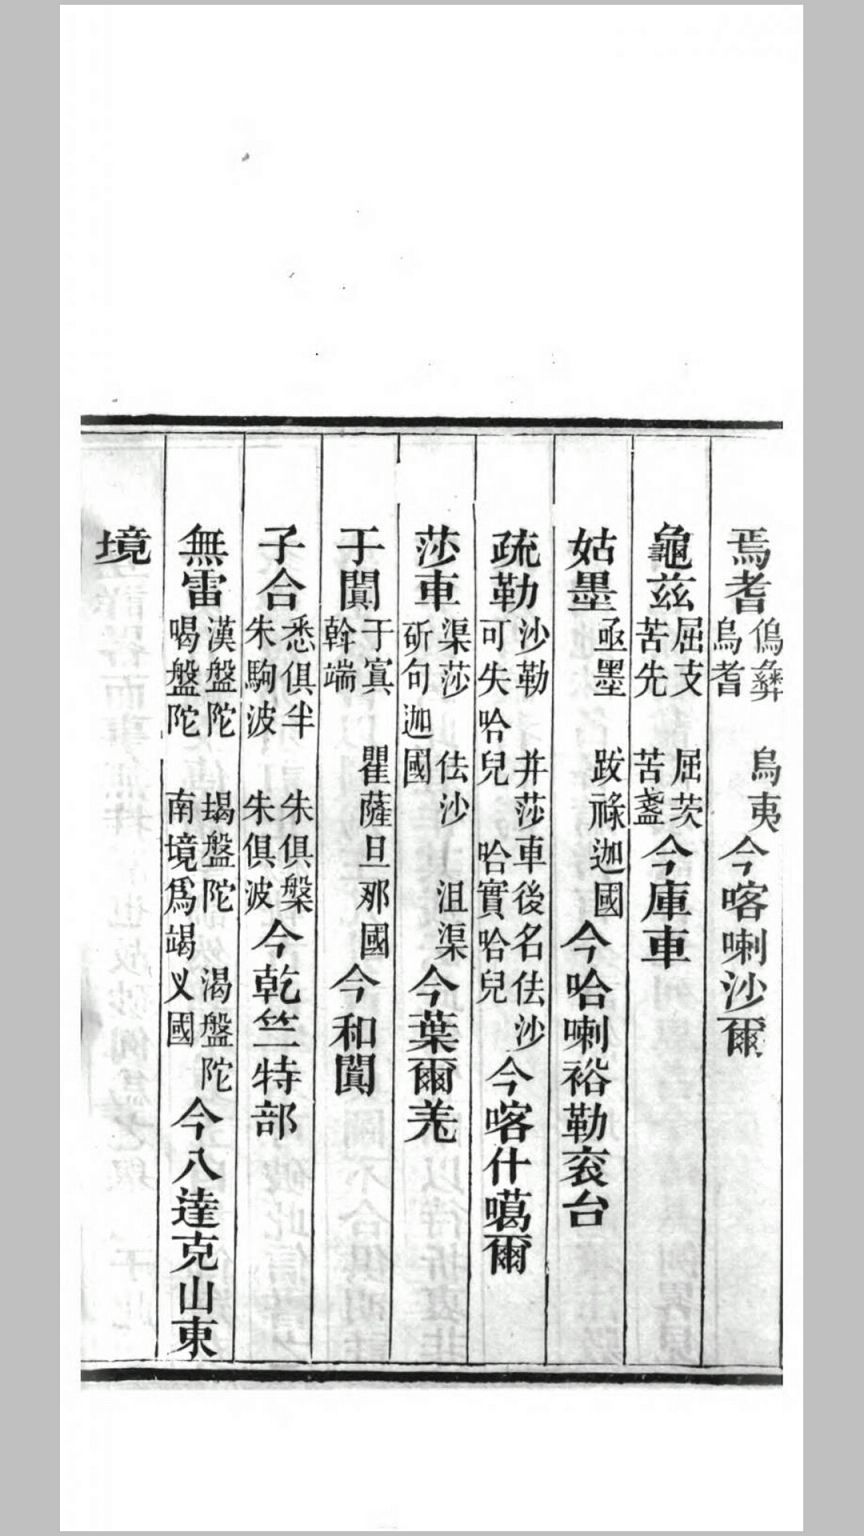 焉耆傿彝　烏夷烏耆今喀喇沙爾
龜玆屈支　屈茨苦先　苦盞今庫車
姑墨亟墨　跋祿迦國今哈喇裕勒袞台
疏勒沙勒　并莎車後名佉沙可失哈兒　哈實哈兒今喀什噶爾
莎車渠莎　佉沙　沮渠斫句迦國今葉爾羌
于闐于寘　瞿薩旦那國斡端今和闐
子合悉俱半　朱俱槃朱駒波　朱俱波今乾竺特部
無雷漢盤陀　朅盤陀　渴盤陀喝盤陀　南境爲竭义國今八達克山東
境